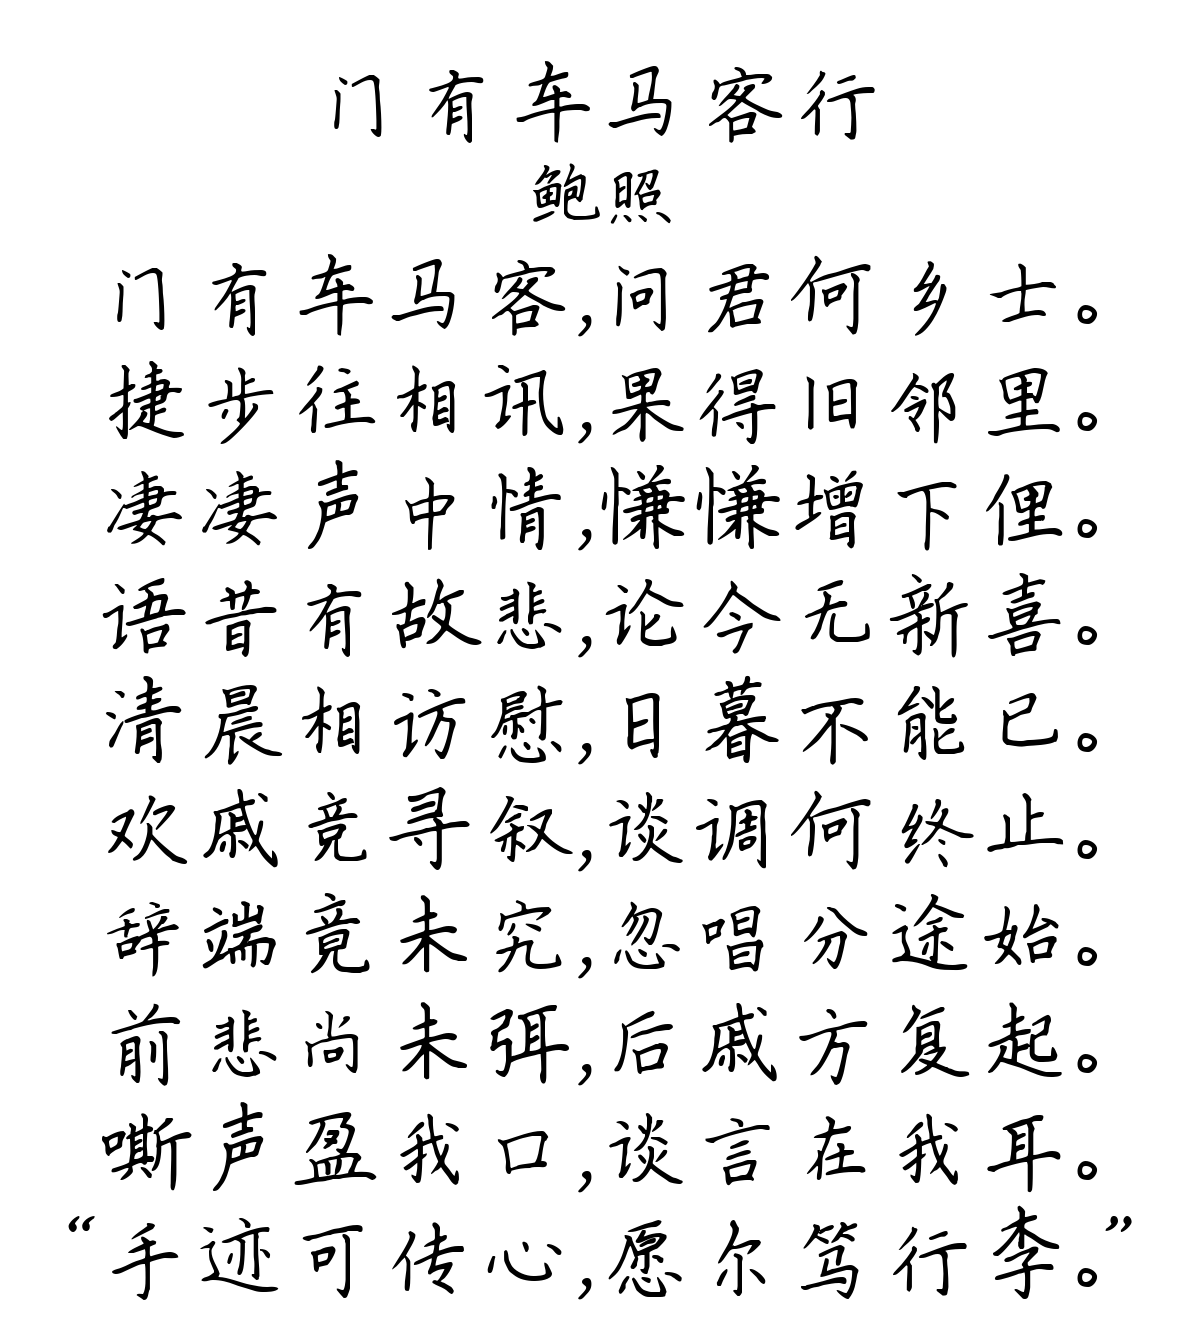 门有车马客行
鲍照
门有车马客,问君何乡士。
捷步往相讯,果得旧邻里。
凄凄声中情,慊慊增下俚。
语昔有故悲,论今无新喜。
清晨相访慰,日暮不能已。
欢戚竞寻叙,谈调何终止。
辞端竟未究,忽唱分途始。
前悲尚未弭,后戚方复起。
嘶声盈我口,谈言在我耳。
“手迹可传心,愿尔笃行李。”